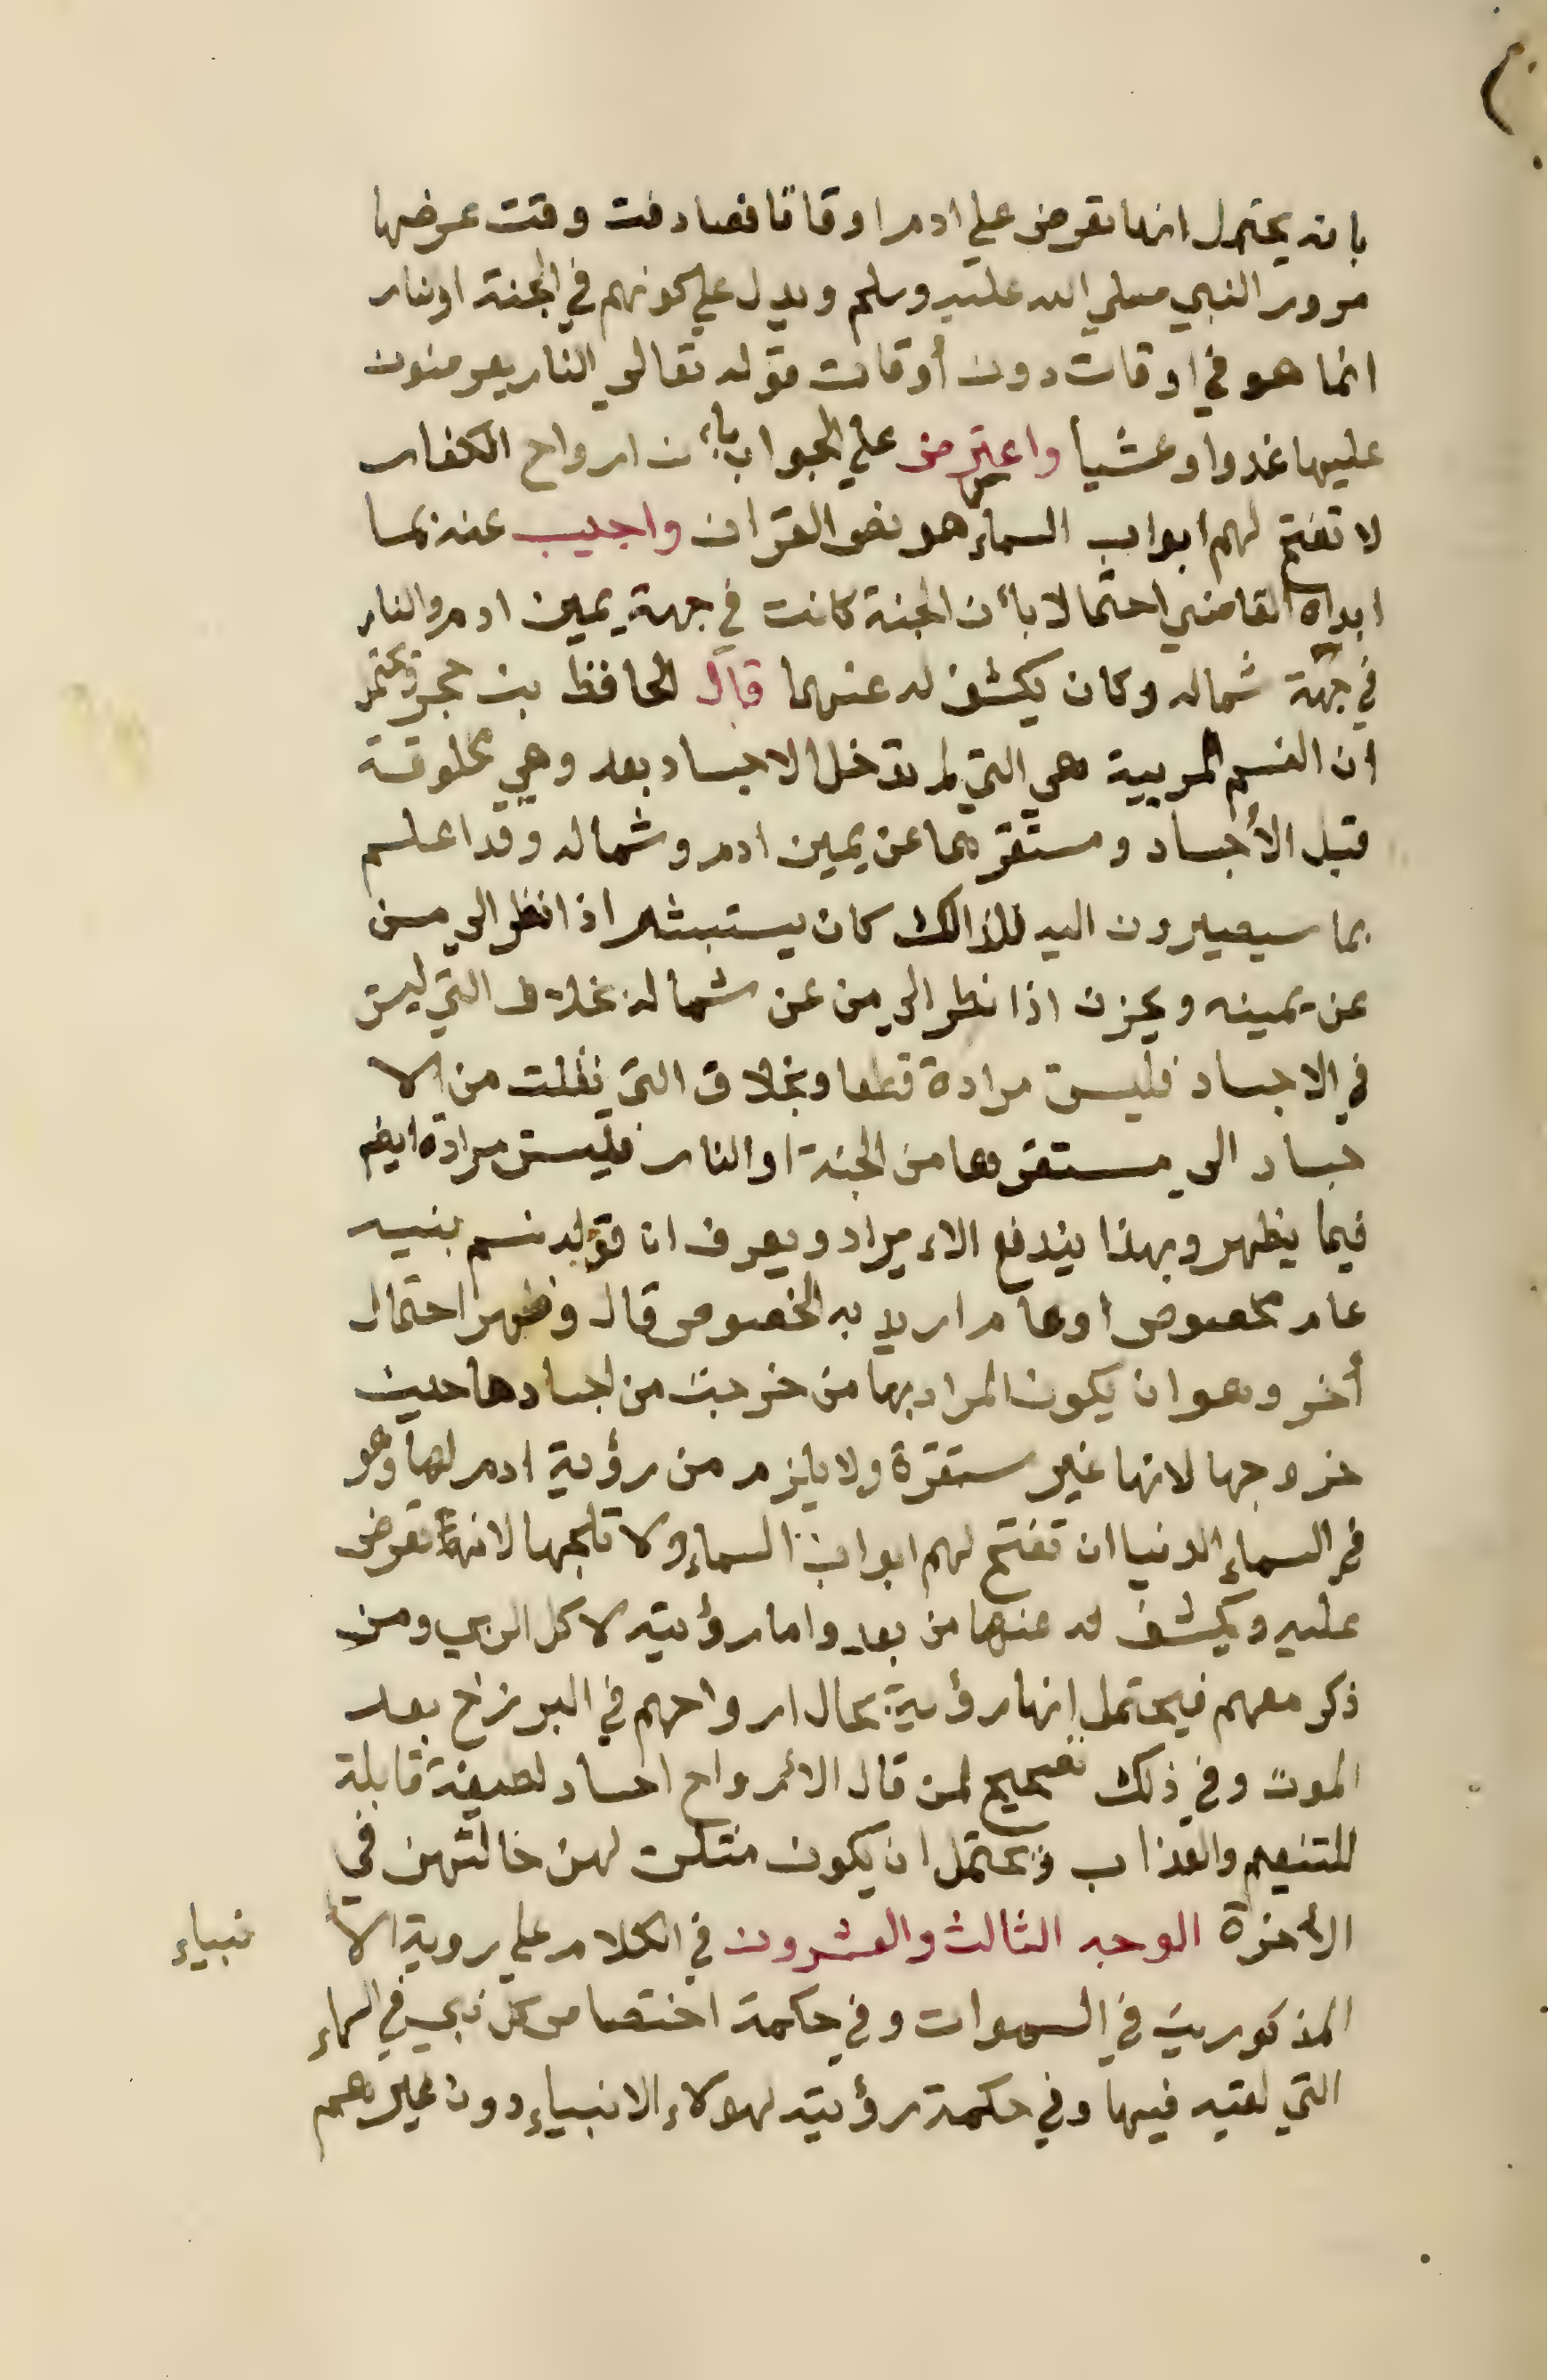 بانه يحتمل انها تعرض علي ادم اوقاتا فصادفت وقت عرضها
مرور النبي صلي الله عليه وسلم ويدل علي كونهم في الجنة او نار
انما هو في اوقات دون أوقات قوله تعالي النار يعرضون
عليها غدوا وعشيا واعترض علي الجواب بأن ارواح الكفار
لا تفتح لهم ابواب السماء كما هو نص القران واجيب عنه بما
ابداه القاضي احتمالا بأن الجنة كانت في جهة يمين ادم والنار
في جهة شماله وكان يكشف له عنهما قال الحافظ بن حجر ويحتمل
ان النسم المربية هي التي لم تدخل الاجساد بعد وهي مخلوقة
قبل الأجساد ومستقرها عن يمين ادم وشماله وقد اعلم
بما سيصيرون اليه فلذالك كان يستبشر اذا نظر الي من
عن يمينه ويحزن اذا نظر الي من عن شماله بخلاف التي ليس
في الاجساد فليس مرادة قطعا وبخلاف التي نقلت من الا
جساد الي مستقرها من الجنة او النار فليس مرادة ايضا
فيما يظهر وبهذا يندفع الايراد ويعرف ان قوله نسم بنيه
عام مخصوص او عام اريد به الخصوص قال وظهر احتمال
أخر وهو ان يكون المراد بها من خرجت من اجسادها حين
خروجها لانها غير مستقرة ولا يلزم من رؤية ادم لها وهو
في السماء الدنيا ان تفتح لهم ابواب السماء ولا تلجها لانها تعرض
عليه ويكشف له عنها من بعد واما رؤيته لاكل الربي ومن
ذكر معهم فيحتمل انها رؤية بحال ارواحهم في البرزخ بعد
الموت وفي ذلك تصحيح لمن قال الأرواح اجساد لطيفة قابلة
للتنعيم والعذاب ويحتمل ان يكون مثلت لهن حالتهن في
الأخرة الوجه الثالث والعشرون في الكلام علي روية الأ نبياء
المذكورين في السموات وفي حكمة اختصاص كل نبي في السماء
التي لقيه فيها وفي حكمة رؤيته لهولاء الانبياء دون غيرهم